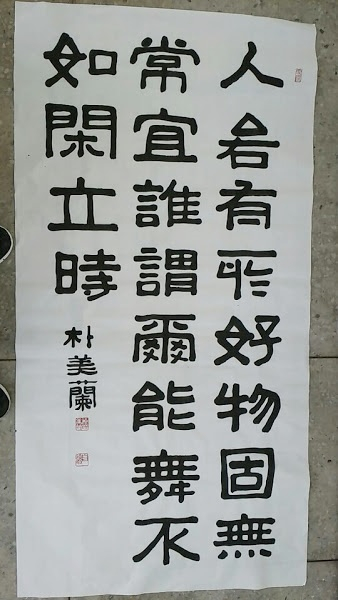 人各有所好物固無
常宜誰謂爾能舞不
如閑立時
朴美蘭